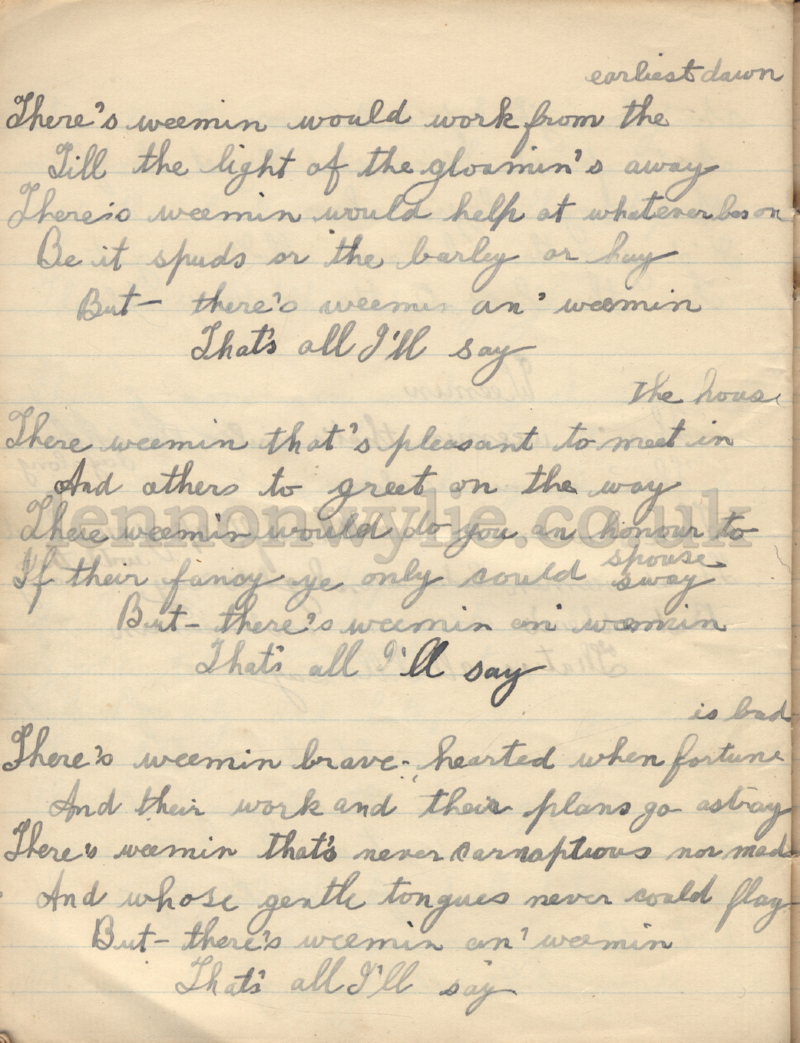 earliest dawn
There's weemin would work from the
Till the light of the gloamin's away
There's weemin would help at whatever bes on
Be it spuds or the barley or hay
But- there's weemin an' weemin
That's all I'll say
the house
There weemin that's pleasant to meet in
And others to greet on the way
There weemin would do you an honour to
spouse
If their fancy ye only could sway
But- there's weemin an' weemin
That's all I'll say
is bad
There's weemin brave-hearted when fortune
And their work and their plans go astray
There's weemin that's never carnaptious nor mad
And whose gentle tongues never could flay
But- there's weemin an' weemin
That's all I'll say
lennonwylie.co.uk